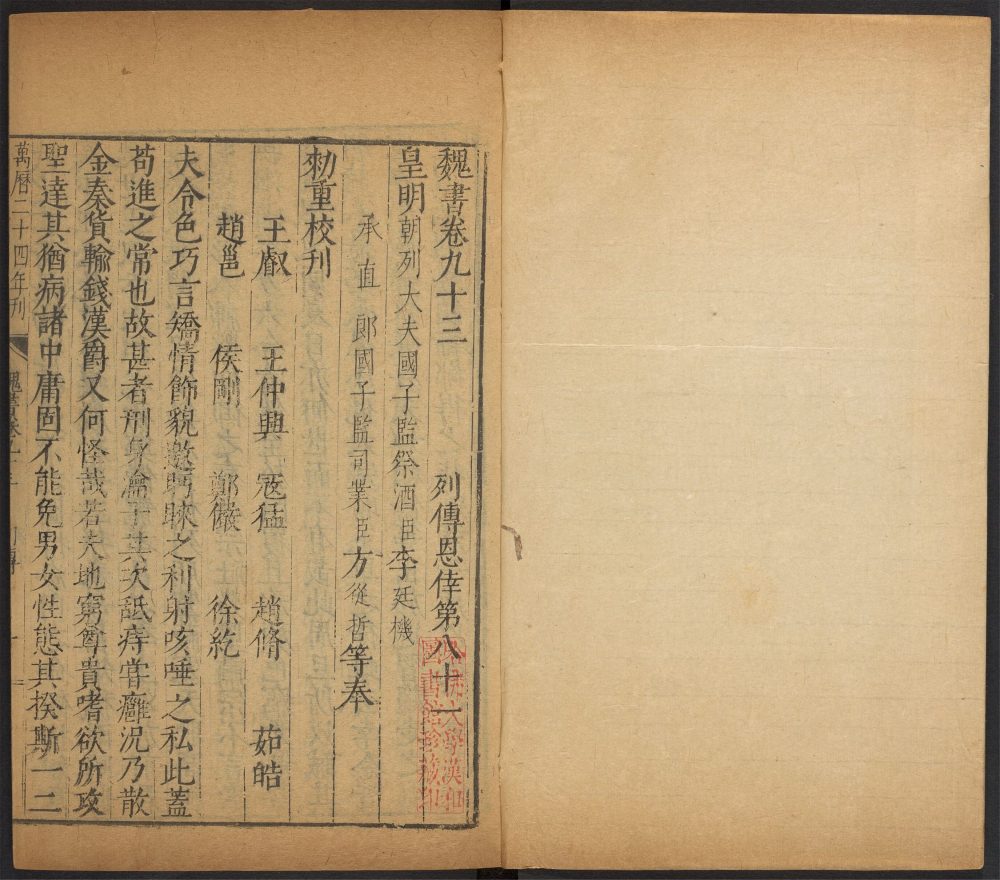 魏書卷九十三 列傳恩倖第八十一
皇明朝列大夫國子監祭酒臣李廷機
承直郎國子監司業臣方從哲等奉
勑重校刋
王叡 王仲興 寇猛 趙脩 茹皓
趙邕 侯剛 鄭儼 徐紇
夫令色巧言矯情飾貌邀眄睞之利射咳唾之私此蓋
苟進之常也故甚者刑身淪子其次舐痔嘗癰況乃散
金秦貨輸錢漢爵又何怪哉若夫地窮尊貴嗜欲所攻
聖達其猶病諸中庸固不能免男女性態其揆斯一二
萬曆二十四年刋
魏書卷九十三
列傳
一
哈佛大學漢和
圖書館珍藏印